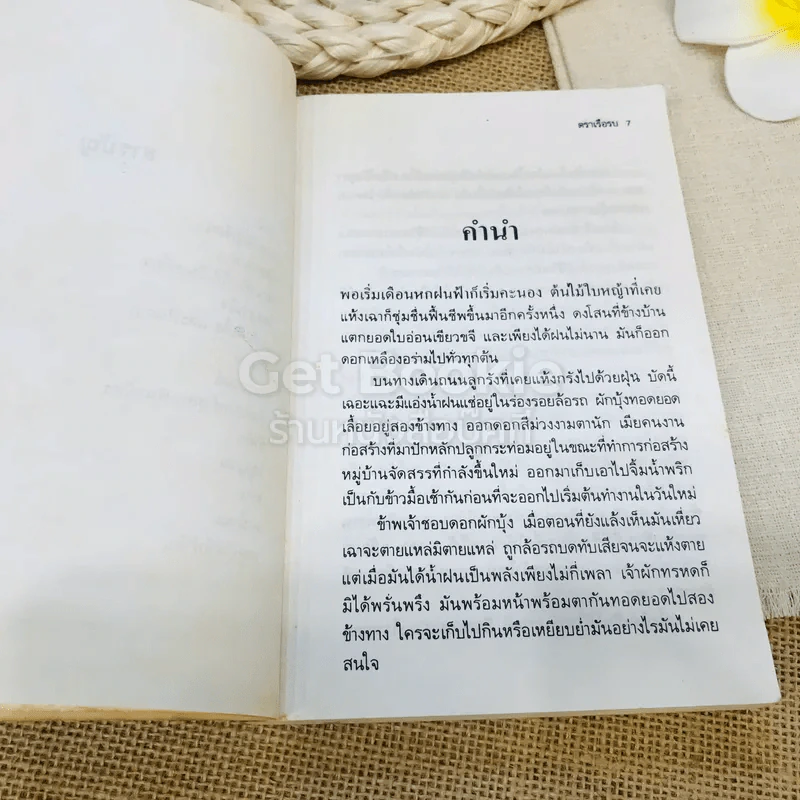 ตราเรือรบ 7
คำนำ
พอเริ่มเดือนหกฝนฟ้าก็เริ่มคะนอง ต้นไม้ใบหญ้าที่เคย
แห้งเฉาก็ชุ่มชื่นฟื้นชีพขึ้นมาอีกครั้งหนึ่ง ดงโสนที่ข้างบ้าน
แตกยอดใบอ่อนเขียวขจี และเพียงได้ฝนไม่นาน มันก็ออก
ดอกเหลืองอร่ามไปทั่วทุกต้น
บนทางเดินถนนลูกรังที่เคยแห้งกรังไปด้วยฝุ่น บัดนี้
เฉอะแฉะมีแอ่งน้ำฝนแช่อยู่ในร่องรอยล้อรถ ผักบุ้งทอดยอด
เลื้อยอยู่สองข้างทาง ออกดอกสีม่วงงามตานัก เมียคนงาน
ก่อสร้างที่มาปักหลักปลูกกระท่อมอยู่ในขณะที่ทำการก่อสร้าง
หมู่บ้านจัดสรรที่กำลังขึ้นใหม่ ออกมาเก็บเอาไปจิ้มน้ำพริก
เป็นกับข้าวมื้อเช้ากันก่อนที่จะออกไปเริ่มต้นทำงานในวันใหม่
ข้าพเจ้าชอบดอกผักบุ้ง เมื่อตอนที่ยังแล้งเห็นมันเหี่ยว
เฉาจะตายแหล่มิตายแหล่ ถูกล้อรถบดทับเสียจนจะแห้งตาย
แต่เมื่อมันได้น้ำฝนเป็นพลังเพียงไม่กี่เพลา เจ้าผักทรหดก็
มิได้พรั่นพรึง มันพร้อมหน้าพร้อมตากันทอดยอดไปสอง
ข้างทาง ใครจะเก็บไปกินหรือเหยียบย่ำมันอย่างไรมันไม่เคย
สนใจ
Get Bookie